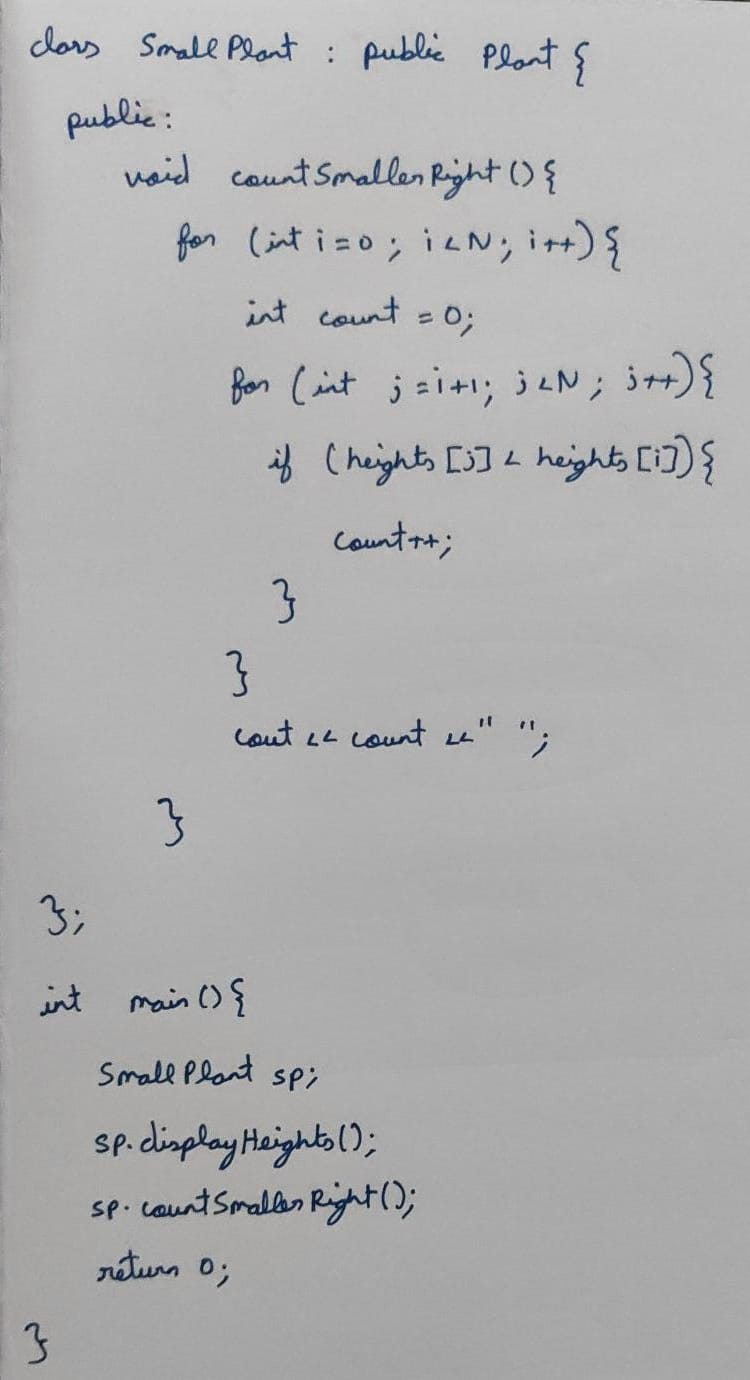 class SmallPlant : public Plant {
public:
void countSmallerRight () {
for (int i = 0 ; i < N ; i++) {
int count = 0;
for (int j = i+1; j < N ; j++) {
if (heights [j] < heights [i]) {
count++;
}
}
cout << count << " ";
}
};
int main () {
SmallPlant sp;
sp.displayHeights();
sp.countSmallerRight();
return 0;
}